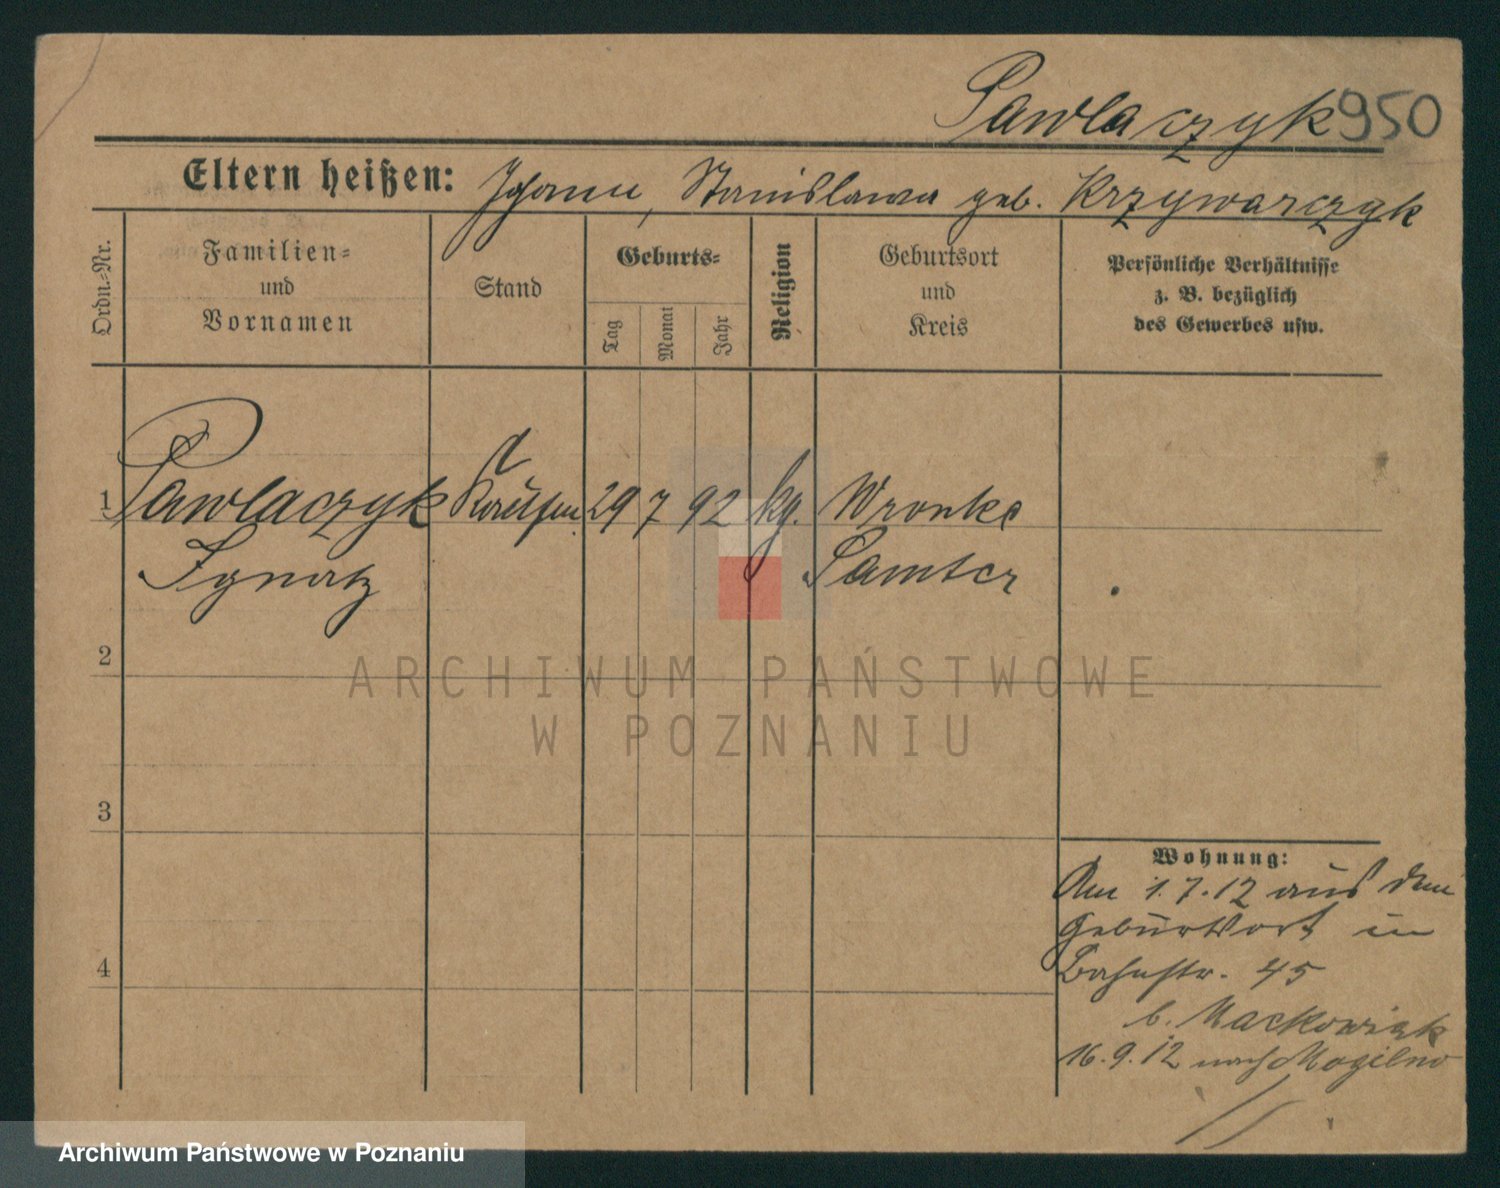 Pawlaczyk 950
Eltern heißen: Johann, Stanislawa geb. Krzywarczyk
Ordn.=Nr.
Familien=
und
Vornamen
Stand
Geburts=
Tag
Monat
Jahr
Religion
Geburtsort
und
Kreis
Persönliche Verhältnisse
z. B. bezüglich
des Gewerbes usw.
1 Pawlaczyk 29 7 92 kg. Wronke
Ignatz Samter
2
3
4
Wohnung:
Am 1.7.12 aus dem
Geburtsort in
Bahnstr. 45
b. Mackowiak
16.9.12 nach Mogilno
ARCHIWUM PAŃSTWOWE
W POZNANIU
Archiwum Państwowe w Poznaniu